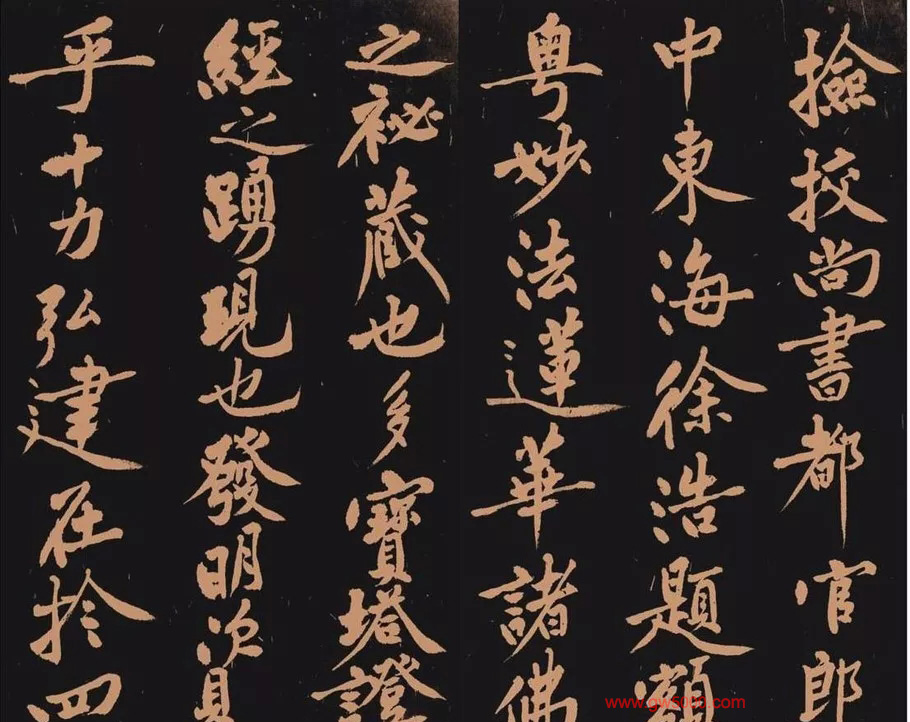 撿挍尚書都官郎
中東海徐浩題額
粤妙法蓮華諸佛
之祕藏也多寶塔證
經之踴現也發明資
乎十力弘建在於四